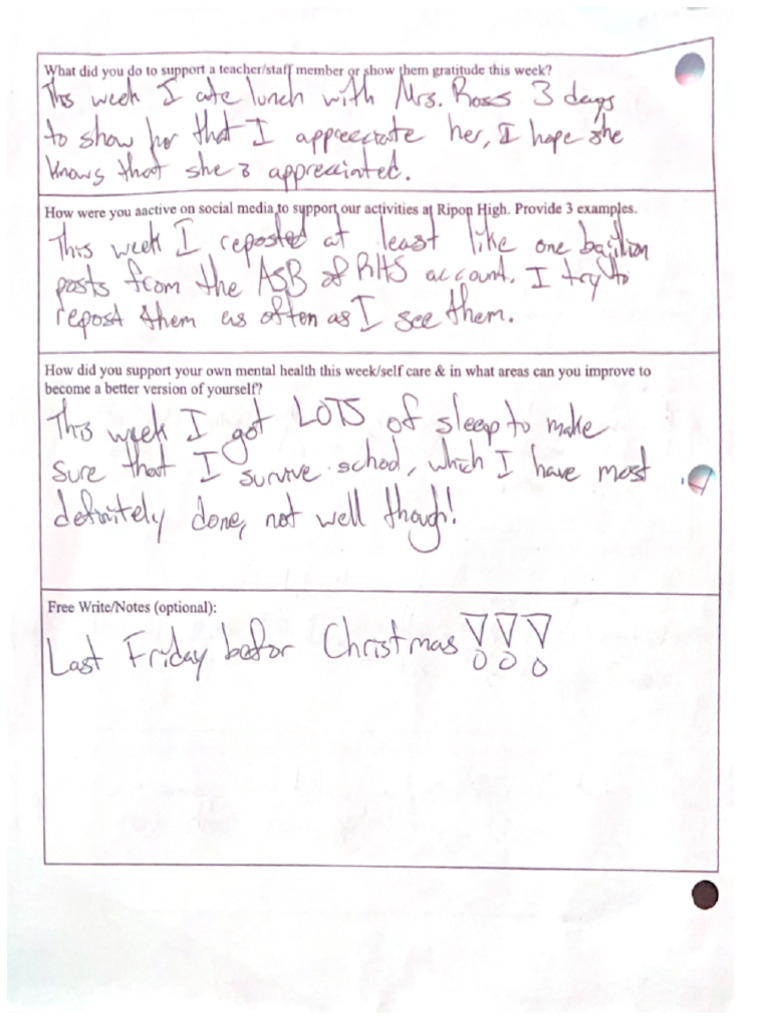 What did you do to support a teacher/staff member or show them gratitude this week?
This week I ate lunch with Mrs. Ross 3 days
to show her that I appreectate her, I hope she
knows that she is appreciinted.
How were you aactive on social media to support our activities at Ripon High. Provide 3 examples.
This week I reposted at least like one bajilion
posts from the ASB of RHS account. I try to
repost them as often as I see them.
How did you support your own mental health this week/self care & in what areas can you improve to
become a better version of yourself?
This week I got LOTS of sleep to make
sure that I survive school, which I have most
definitely done, not well though!
Free Write/Notes (optional):
Last Friday befor Christmas !!!